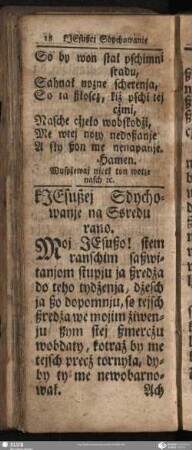 18 JEsußei Sdychowanie
So by won stal pschimni
stadu,
Sahnal nozne scherenja,
So ta stłoscz, kiż pschi tej
czmi,
Nasche cheło wobskodżi,
Me wtej nozy nedoßanje
A sty ßon me nenapanje.
Hamen.
Wußpiewaj nieet ton wotze
nasch ꝛc.
JEsußej Sdycho-
wanje na Ssredu
rano.
Moj JEsußo! stem
ranschim saßwi-
tanjom stupju ja ßredża
do teho tydżenja, dżesch
ja ßo dopomnju, se tejsch
ßredża we mojim żiwen-
ju ßom stej ßmerczu
wobdaty, kotraż by me
tejsch precż tornyła, dy-
by ty me newobarno-
wal. Ach